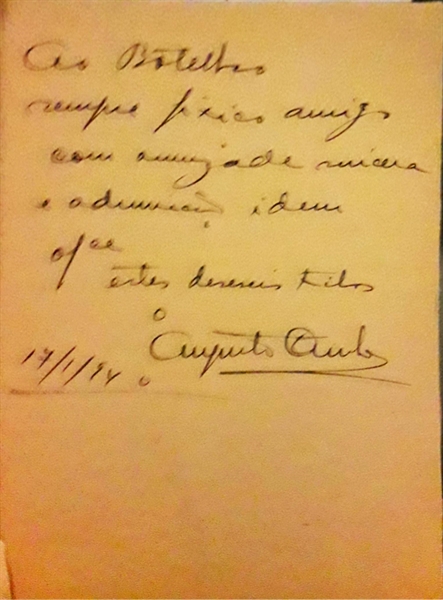 Ao Botelho
sempre fixico amigo
com amizade sincera
e admiração idem
ofce
estes desenis tidos
o
Augusto
17/1/94